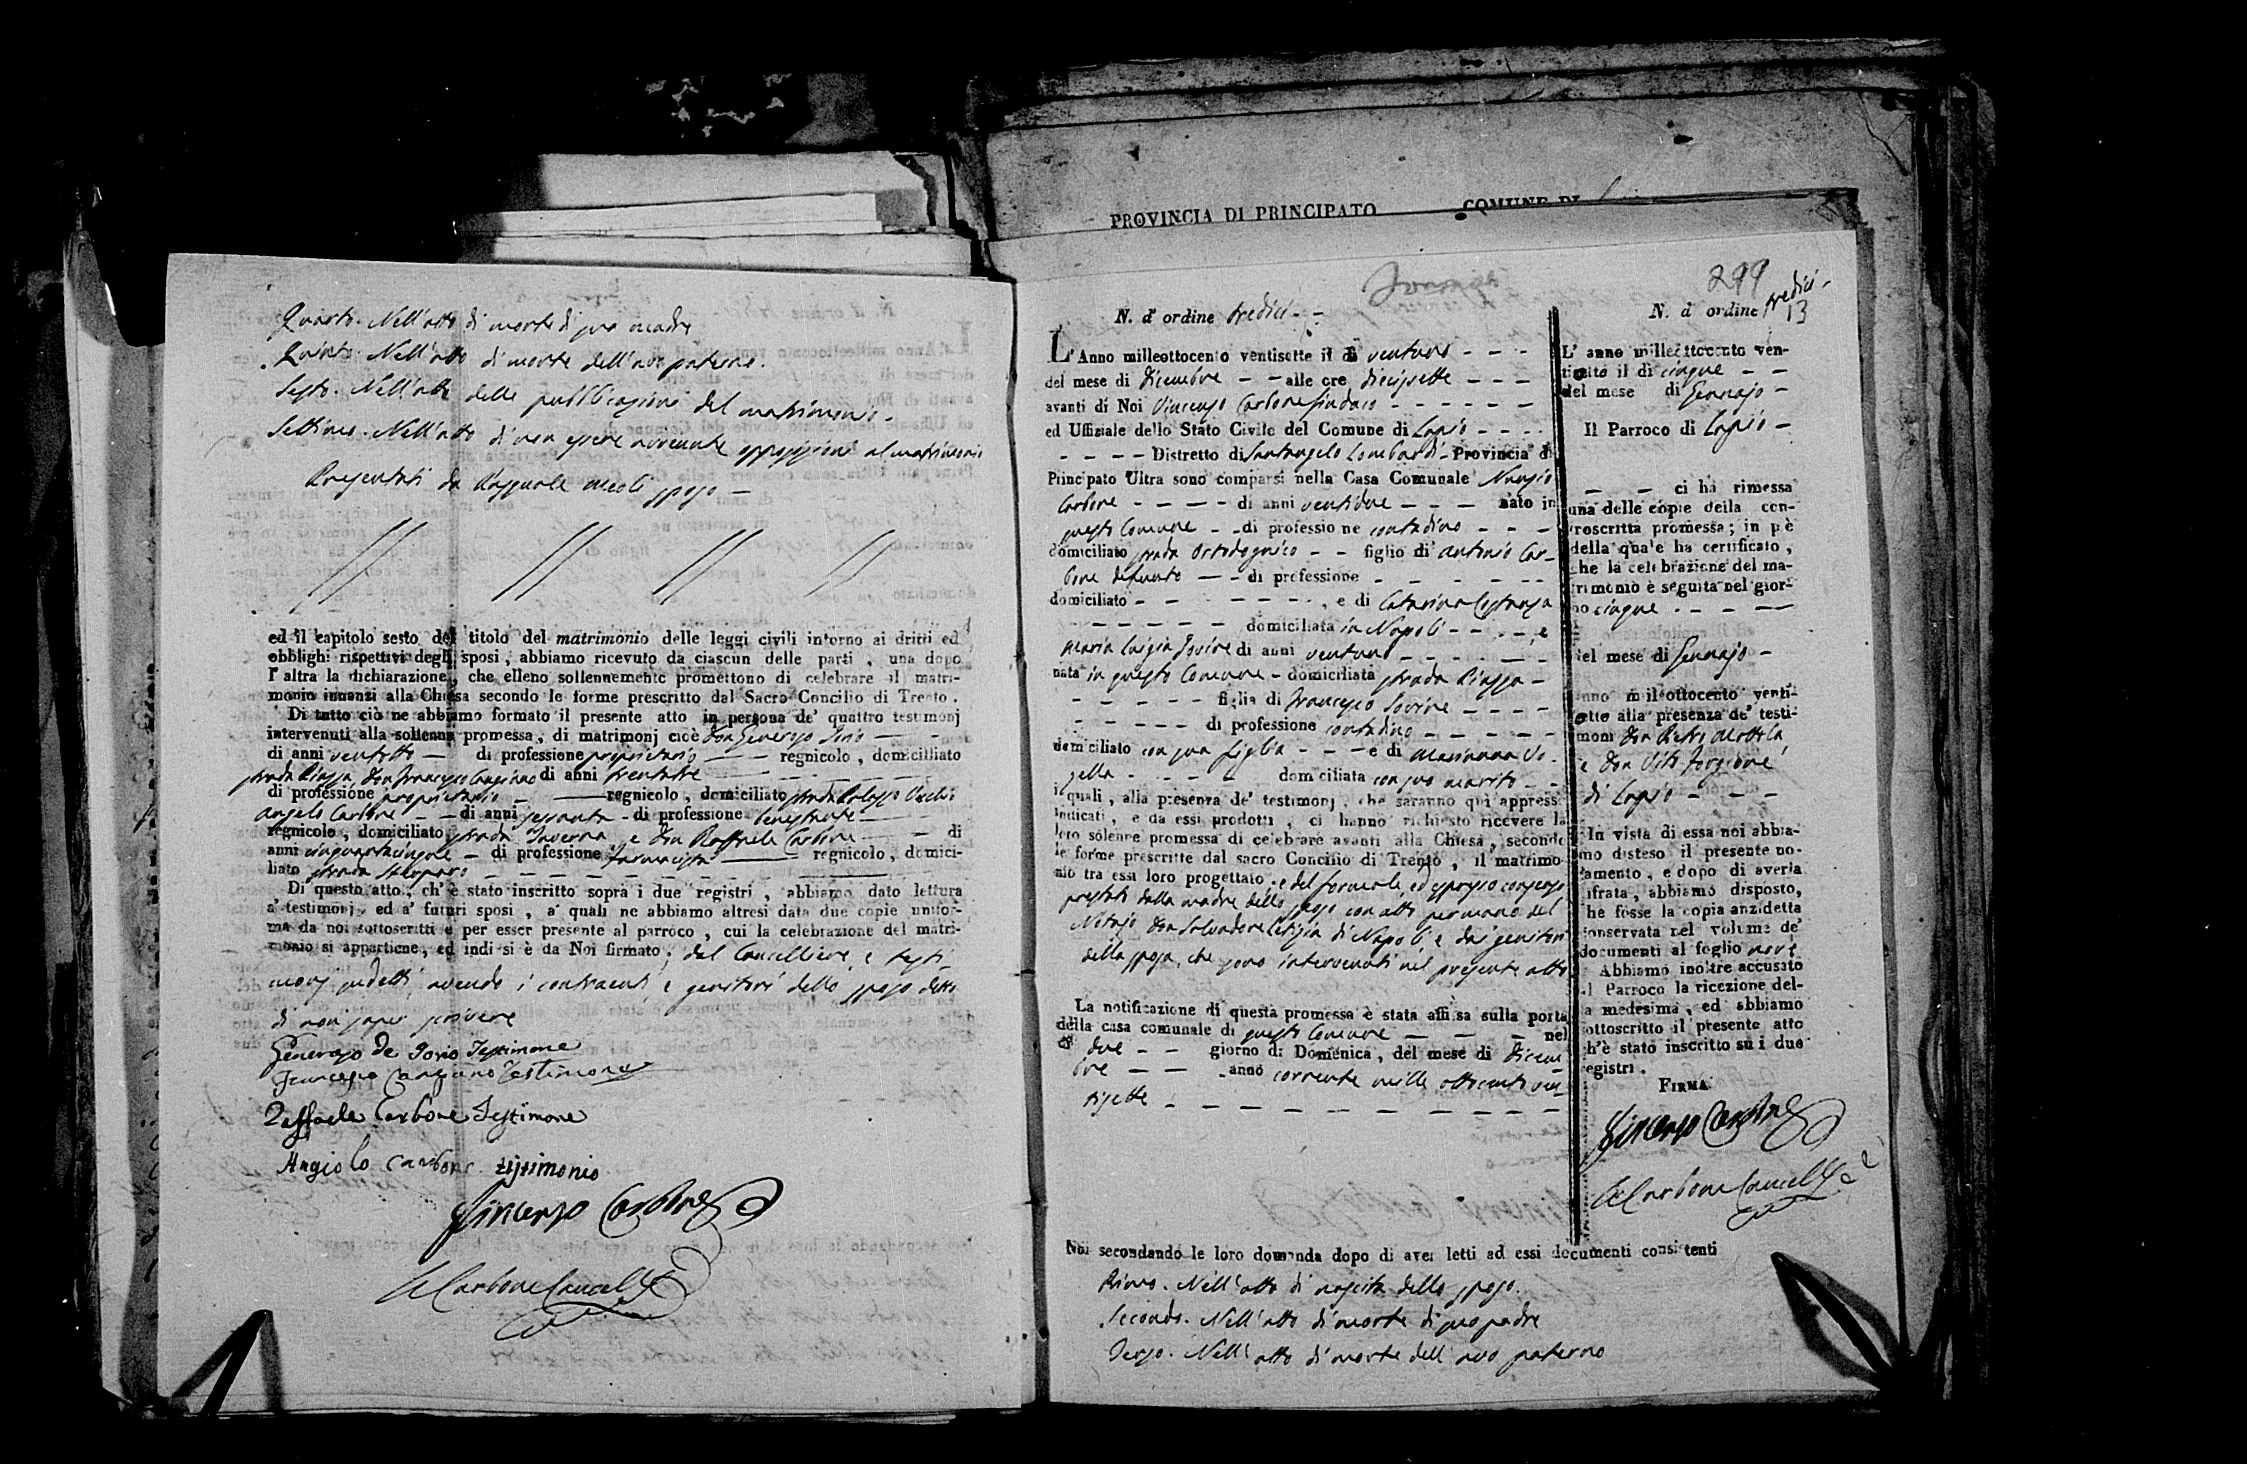 Quarto. Nell'atto di morte di sua madre
Quinto. Nell'atto di morte dell'avo paterno.
Sesto. Nell'atto delle pubblicazioni del matrimonio.
Settimo. Nell'atto di non essere avvenute opposizioni al matrimonio
Presentati da Pasquale sposo
ed il capitolo sesto del titolo del matrimonio delle leggi civili intorno ai dritti ed
obblighi rispettivi degli sposi, abbiamo ricevuto da ciascun delle parti, una dopo
l'altra la dichiarazione, che elleno sollennemente promettono di celebrare il matri-
monio innanzi alla Chiesa secondo le forme prescritto dal Sacro Concilio di Trento.
Di tutto ciò ne abbiamo formato il presente atto in persona de' quattro testimonj
intervenuti alla sollenne promessa, di matrimonj cioè Don Generoso
di anni ventotto — di professione proprietario — regnicolo, domicilliato
strada Piazza, Don Francesco Cangiano di anni trentatre
di professione proprietario — regnicolo, domiciliato strada
Angelo Carbone - - di anni sessanta - di professione benestante
regnicolo, domiciliato strada Taverna, e Don Raffaele Carbone — di
anni cinquantacinque — di professione farmacista — regnicolo, domici-
liato strada
Di questo atto, ch'è stato inscritto sopra i due registri, abbiamo dato lettura
a' testimonj, ed a' futuri sposi, a' quali ne abbiamo altresì data due copie unifor-
ma da noi sottoscritti e per esser presente al parroco, cui la celebrazione del matri-
monio si appartiene, ed indi si è da Noi firmato, dal Cancelliere, e testi-
monj sudetti, avendo i contraenti, e genitori dello sposo detto
di non saper scrivere
Generoso de Iorio Testimone
Francesco Cangiano Testimone
Raffaele Carbone Testimone
Angiolo Carbone testimonio
Vincenzo Carbone
Carbone Cancelliere
PROVINCIA DI PRINCIPATO COMUNE DI
299
N. d' ordine tredici - -
L'Anno milleottocento ventisette il dì ventuno - - -
del mese di Dicembre - - alle ore diecisette - - -
avanti di Noi Vincenzo Carbone Sindaco - - - - - -
ed Uffiziale dello Stato Civile del Comune di Lapio - - - -
- - - - Distretto di Santangelo Lombardi - Provincia di
Principato Ultra sono comparsi nella Casa Comunale Nunzio
Carbone - - - - di anni ventidue - - - nato in
questo Comune - - di professione contadino - - -
domiciliato strada - - figlio di Antonio Car-
bone defunto — - di professione - - - - - -
domiciliato - - - - - - -, e di Catarina Costanza
- - - - - - domiciliata in Napoli - - - -, e
Maria Luigia Iovine di anni ventuno - - - - - -
nata in questo Comune - domiciliata strada Piazza -
- - - - - - figlia di Francesco Iovine - - - -
- - - - - di professione contadino - - - - -
domiciliato con sua figlia - - - e di Marianna
- - - - domiciliata con suo marito - -
i quali, alla presenza de' testimonj, che saranno qui appresso
indicati, e da essi prodotti, ci hanno richiesto ricevere la
loro solenne promessa di celebrare avanti alla Chiesa, secondo
le forme prescritte dal sacro Concilio di Trento, il matrimo-
nio tra essi loro progettato, e del formale, ed espresso consenso
prestati dalla madre dello sposo con atto per mano del
Notajo Don Salvadore di Napoli e dai genitori
della sposa, che sono intervenuti nel presente atto
La notificazione di questa promessa è stata affissa sulla porta
della casa comunale di questo Comune — — — nel
dì due - - giorno di Domenica, del mese di Dicem
bre — — - anno corrente mille ottocento ven
tisette - - - - - - - - - -
N. d' ordine tredici
13
L' anno milleottocento ven-
tiotto il dì cinque - -
del mese di Gennajo -
Il Parroco di Lapio -
— — ci ha rimessa
una delle copie della con-
troscritta promessa; in piè
della quale ha certificato,
che la celebrazione del ma-
trimonio è seguita nel gior-
no cinque - - - —
del mese di Gennajo -
anno milleottocento venti-
otto alla presenza de' testi-
moni Don Pietro Mottola
e Don Vito Forgione
di Lapio - - -
In vista di essa noi abbia-
mo disteso il presente no-
tamento, e dopo di averla
cifrata, abbiamo disposto,
che fosse la copia anzidetta
conservata nel volume de'
documenti al foglio nove
Abbiamo inoltre accusato
al Parroco la ricezione del-
la medesima, ed abbiamo
sottoscritto il presente atto
ch'è stato inscritto su i due
registri.
FIRMA
Vincenzo Carbone
Carbone Cancelliere
Noi secondando le loro domanda dopo di aver letti ad essi documenti consistenti
Primo. Nell'atto di nascita dello sposo.
Secondo. Nell'atto di morte di suo padre
Terzo. Nell'atto di morte dell'avo paterno